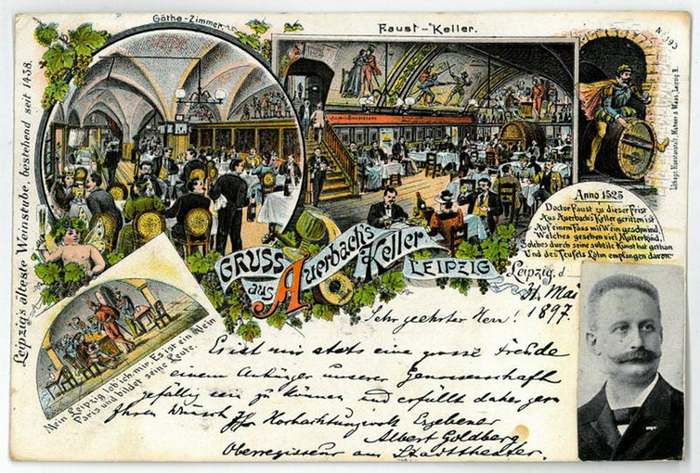 Göthe-Zimmer.
Faust-Keller.
No 193
Leipzig's älteste Weinstube, bestehend seit 1438.
Anno 1525
Doctor Faust zu dieser Frist
Aus Auerbach's Keller geritten ist
Auf einem Fass mit Wein geschwind,
Welches gesehen viel Mutterkind,
Solches durch seine subtile Kunst hat gethan
Und des Teufels Lohn empfangen davon.
GRUSS
aus
Auerbach's
Keller
LEIPZIG
Mein Leipzig lob' ich mir, Es ist ein klein
Paris und bildet seine Leute.
Leipzig, d.
31. Mai
1897.
Sehr geehrter Herr!
Es ist mir stets eine grosse Freude
einem Anhänger unserer Genossenschaft
gefällig sein zu können und erfüllt daher gern
Ihren Wunsch Ihr Hochachtungsvoll Ergebener
Albert Goldberg
Oberregisseur am Stadttheater.